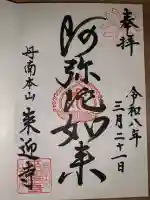 奉拝
令和八年
三月二十一日
阿弥陀如来
丹南本山
来迎寺